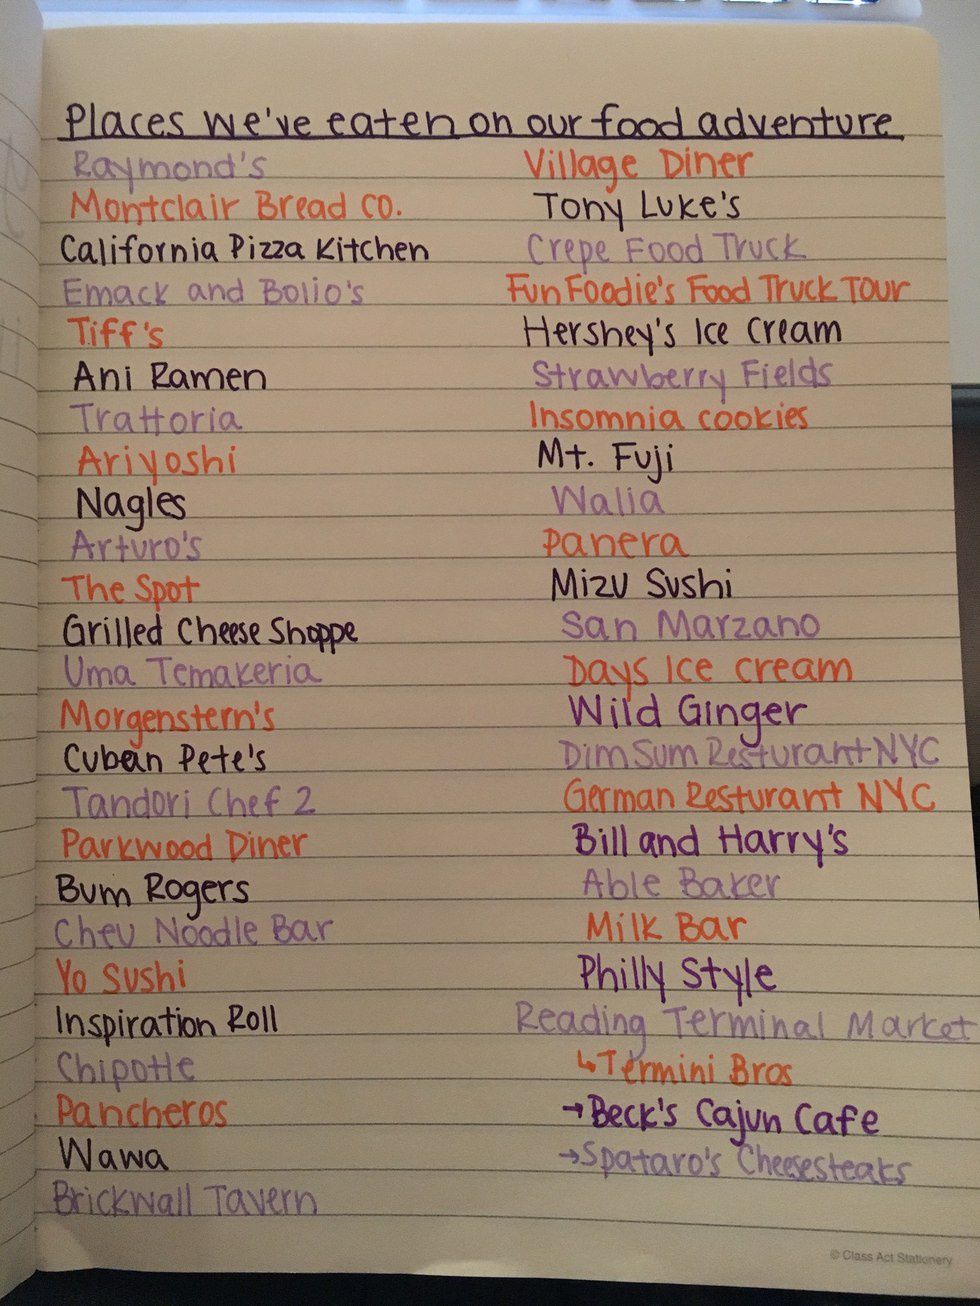 Places we've eaten on our food adventure
Raymond's
Montclair Bread Co.
California Pizza Kitchen
Emack and Bolio's
Tiff's
Ani Ramen
Trattoria
Ariyoshi
Nagles
Arturo's
The Spot
Grilled Cheese Shoppe
Uma Temakeria
Morgenstern's
Cuban Pete's
Tandori Chef 2
Parkwood Diner
Bum Rogers
Cheu Noodle Bar
Yo Sushi
Inspiration Roll
Chipotle
Pancheros
Wawa
Brickwall Tavern
Village Diner
Tony Luke's
Crepe Food Truck
Fun Foodie's Food Truck Tour
Hershey's Ice Cream
Strawberry Fields
Insomnia cookies
Mt. Fuji
Walia
Panera
Mizu Sushi
San Marzano
Days Ice cream
Wild Ginger
Dim Sum Resturant NYC
German Resturant NYC
Bill and Harry's
Able Baker
Milk Bar
Philly Style
Reading Terminal Market
↳Termini Bros
→Beck's Cajun Cafe
→Spataro's Cheesesteaks
© Class Act Stationery